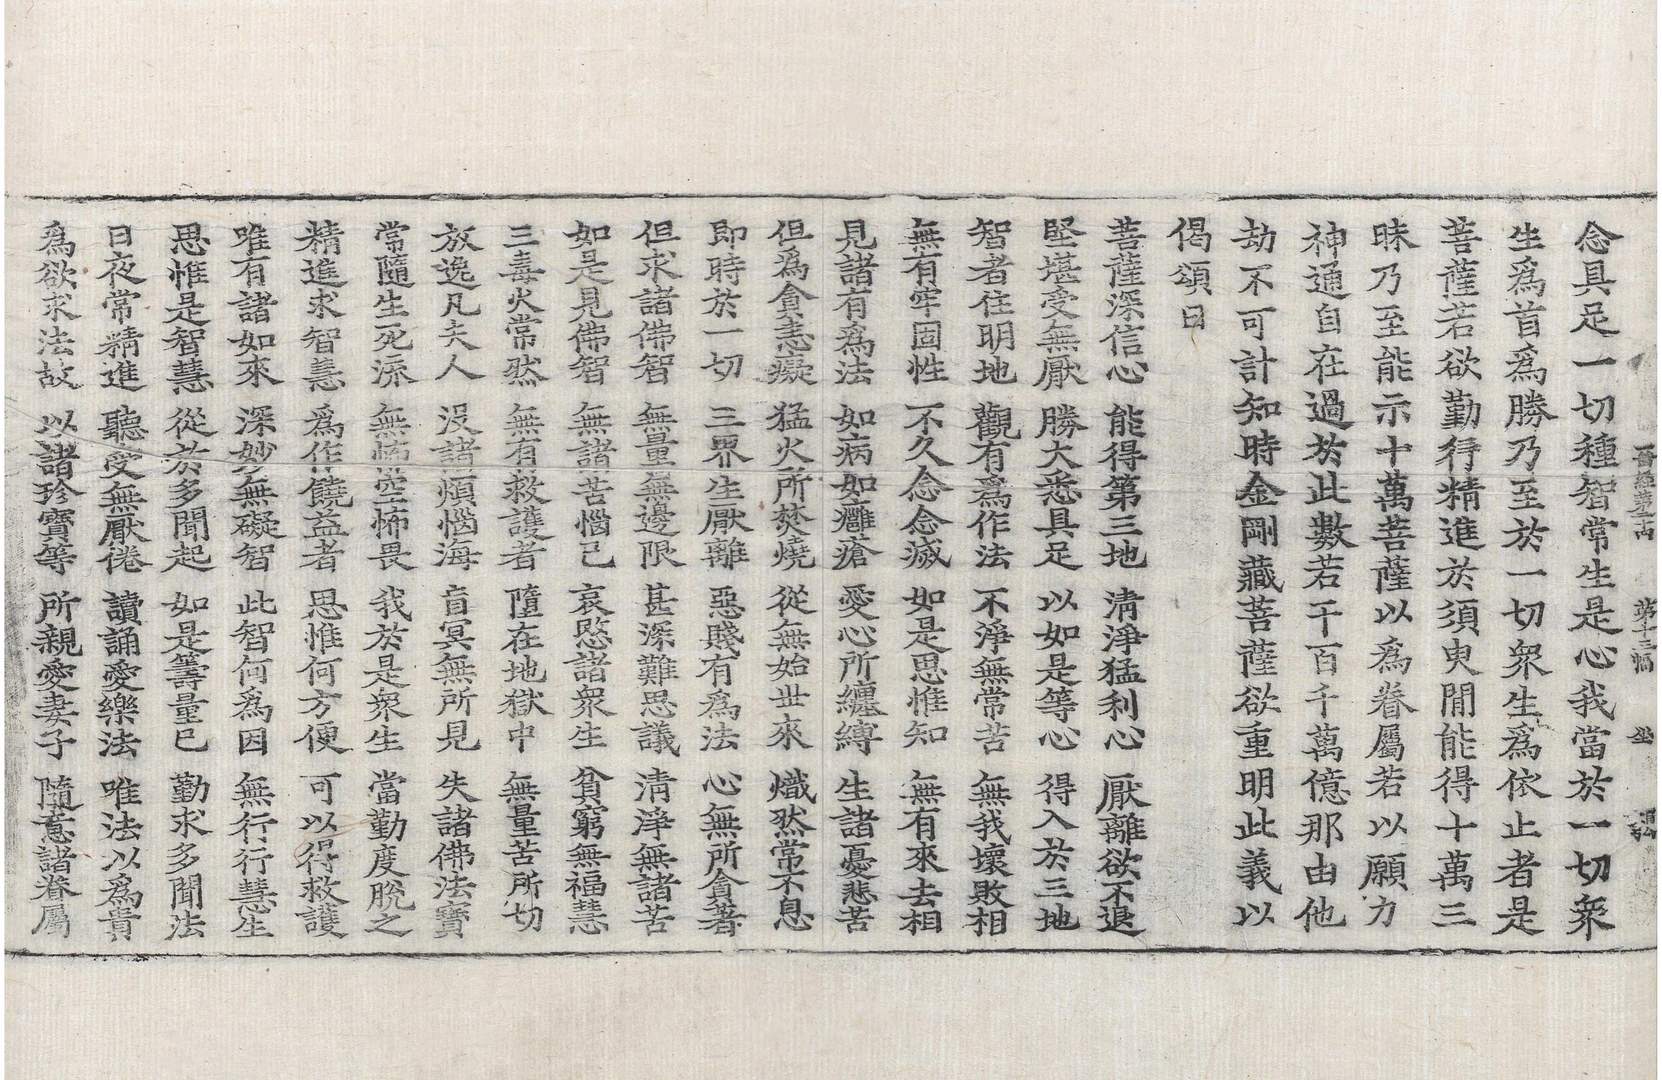 晉經卷 第十三幅 坐
念具足一切種智常生是心我當於一切衆
生爲首爲勝乃至於一切衆生爲依止者是
菩薩若欲勤行精進於須臾閒能得十萬三
昧乃至能示十萬菩薩以爲眷屬若以願力
神通自在過於此數若干百千萬億那由他
劫不可計知時金剛藏菩薩欲重明此義以
偈頌曰
菩薩深信心 能得第三地 清淨猛利心 厭離欲不退
堅堪受無厭 勝大悉具足 以如是等心 得入於三地
智者住明地 觀有爲作法 不淨無常苦 無我壞敗相
無有牢固性 不久念念滅 如是思惟知 無有來去相
見諸有爲法 如病如癰瘡 愛心所纏縛 生諸憂悲苦
但爲貪恚癡 猛火所焚燒 從無始世來 熾然常不息
即時於一切 三界生厭離 惡賤有爲法 心無所貪著
但求諸佛智 無量無邊限 甚深難思議 清淨無諸苦
如是見佛智 無諸苦惱已 哀愍諸衆生 貧窮無福慧
三毒火常然 無有救護者 墮在地獄中 無量苦所切
放逸凡夫人 沒諸煩惱海 盲冥無所見 失諸佛法寶
常隨生死流 無怖空怖畏 我於是衆生 當勤度脫之
精進求智慧 爲作饒益者 思惟何方便 可以得救護
唯有諸如來 深妙無礙智 此智何爲因 無行行慧生
思惟是智慧 從於多聞起 如是籌量已 勤求多聞法
日夜常精進 聽受無厭倦 讀誦愛樂法 唯法以爲貴
爲欲求法故 以諸珍寶等 所親愛妻子 隨意諸眷屬